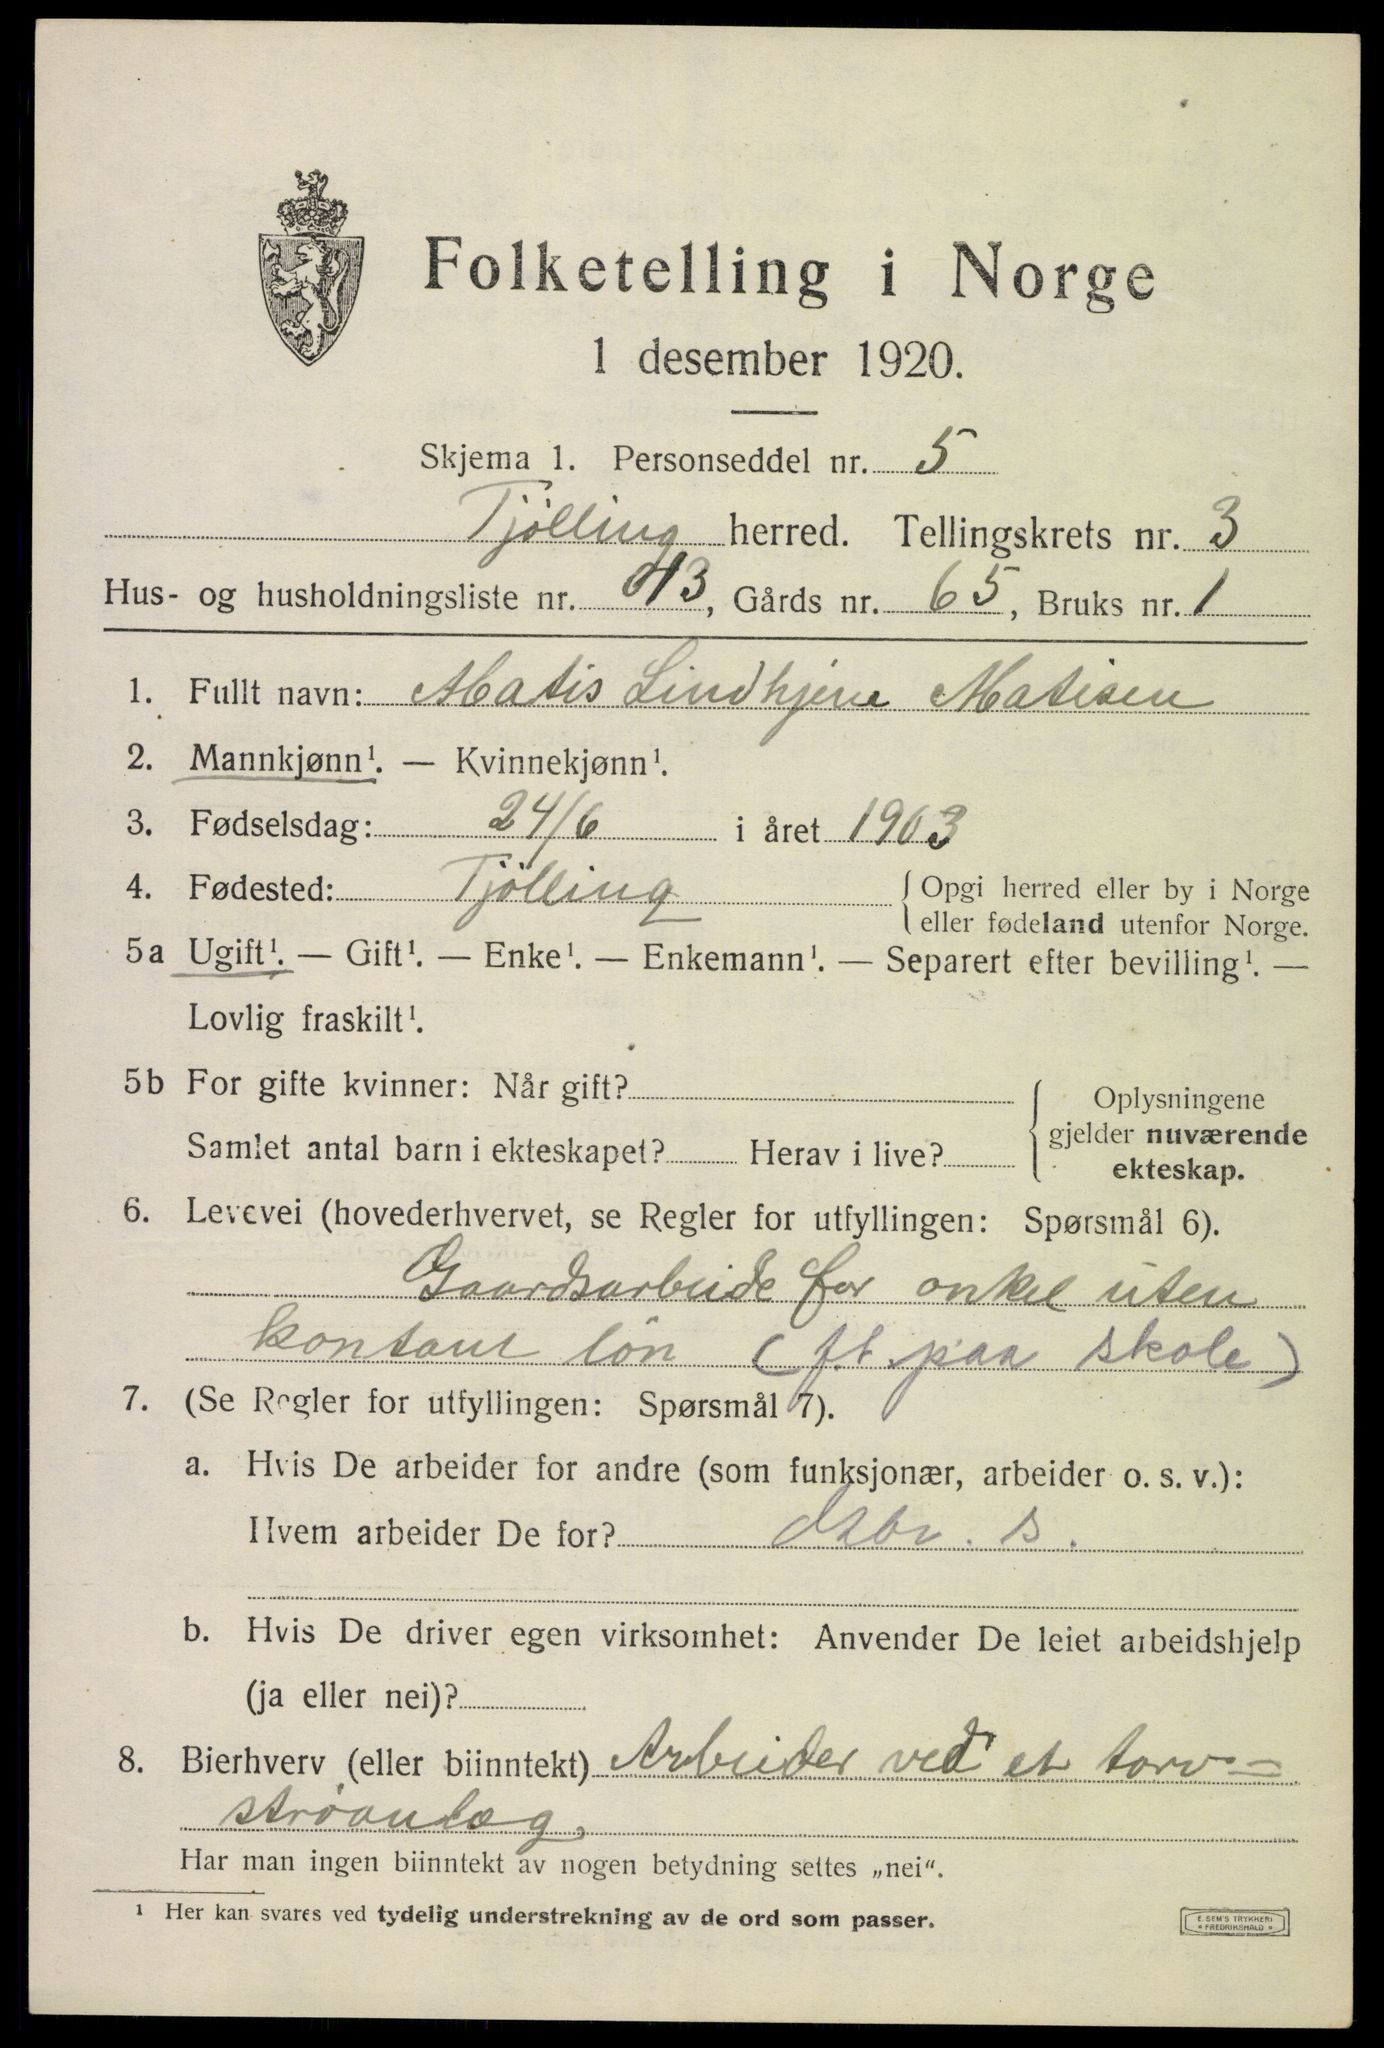 Folketelling i Norge
1 desember 1920.
Skjema 1. Personseddel nr. 5
Tjölling herred. Tellingskrets nr. 3
Hus- og husholdningsliste nr. 43, Gårds nr. 65, Bruks nr. 1
1. Fullt navn: Matis Lindhjem Matisen
2. Mannkjønn¹. — Kvinnekjønn¹.
3. Fødselsdag: 24/6 i året 1903
4. Fødested: Tjölling { Opgi herred eller by i Norge
eller fødeland utenfor Norge.
5a Ugift¹. — Gift¹. — Enke¹. — Enkemann¹. — Separert efter bevilling¹. —
Lovlig fraskilt¹.
5b For gifte kvinner: Når gift?
Samlet antal barn i ekteskapet? Herav i live?
Oplysningene
gjelder nuværende
ekteskap.
6. Levevei (hovederhvervet, se Regler for utfyllingen: Spørsmål 6).
Gaardsarbeide for onkel uten
kontant lön (f.t. paa skole)
7. (Se Regler for utfyllingen: Spørsmål 7).
a. Hvis De arbeider for andre (som funksjonær, arbeider o. s. v.):
Hvem arbeider De for? s.
b. Hvis De driver egen virksomhet: Anvender De leiet arbeidshjelp
(ja eller nei)?
8. Bierhverv (eller biinntekt) Arbeider ved et torv=
strøanlæg.
Har man ingen biinntekt av nogen betydning settes „nei“.
¹ Her kan svares ved tydelig understrekning av de ord som passer.
E. SEM'S TRYKKERI
FREDRIKSHALD